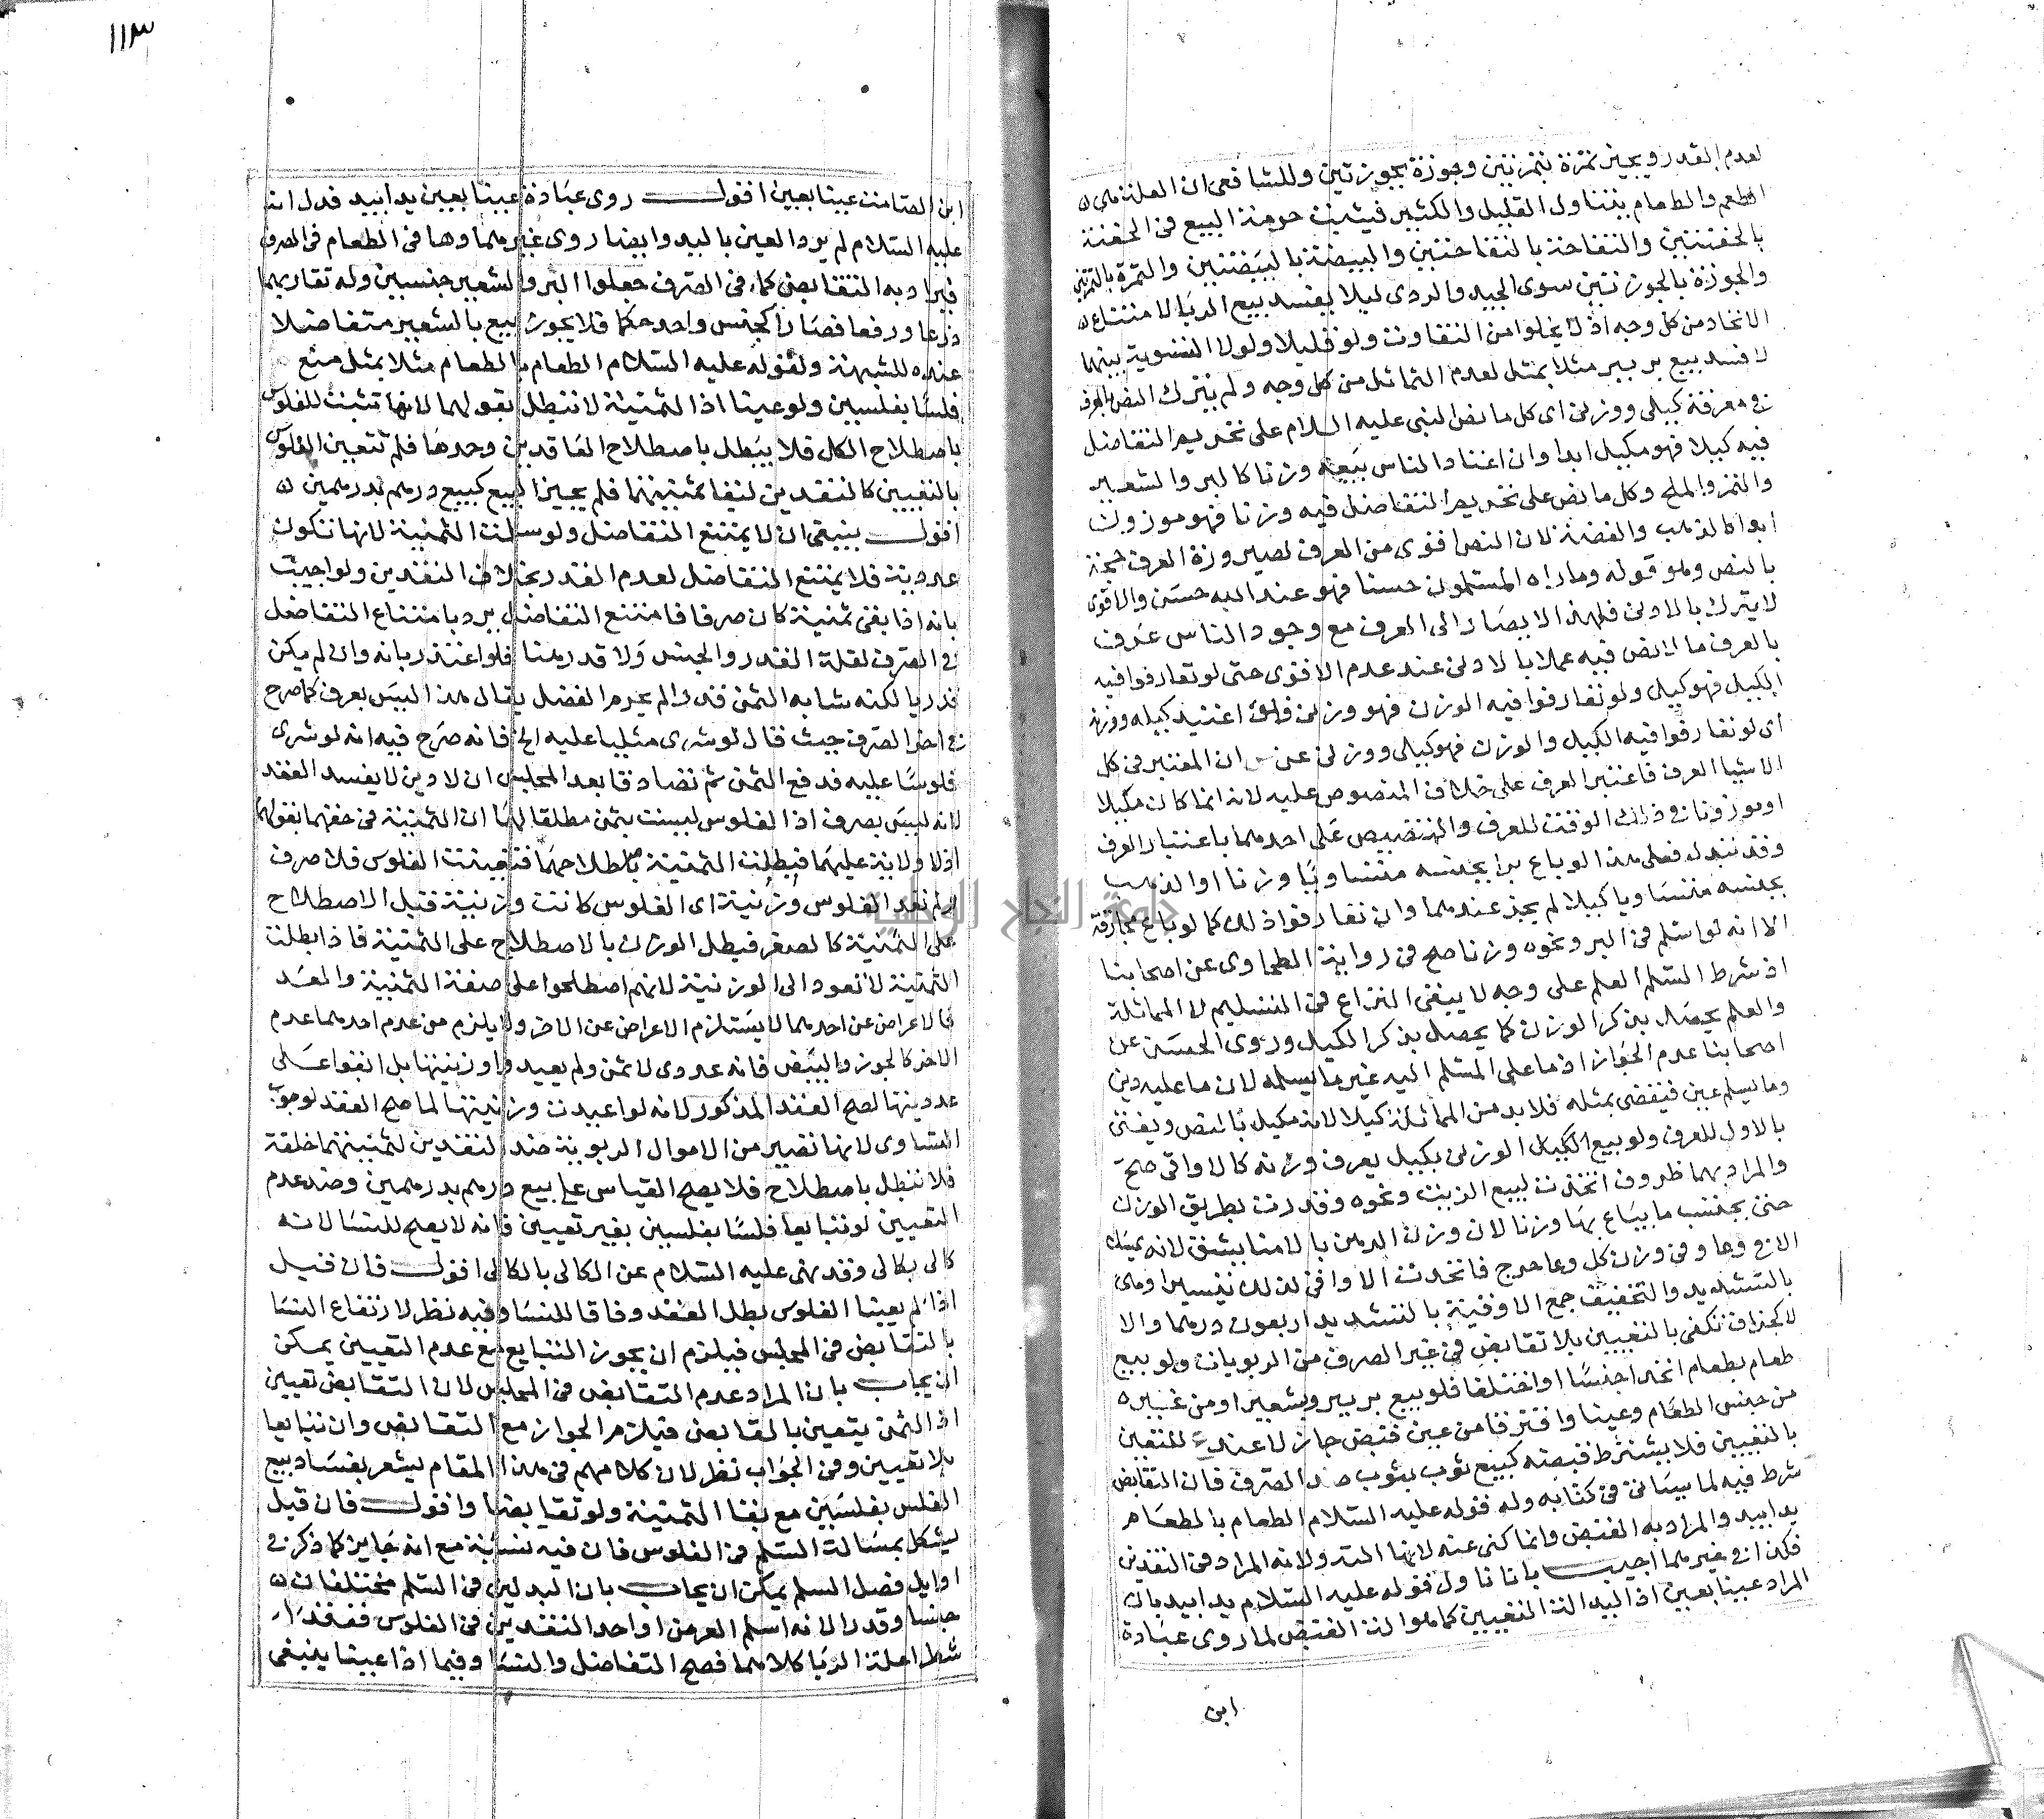 لعدم القدر ويجيز تمرة بتمرتين وجوزة بجوزتين وللشافعي ان العلة هي
الطعم والطعام يتناول القليل والكثير فيثبت حرمة البيع في الحفنة
بالحفنتين والتفاحة بالتفاحتين والبيضة بالبيضتين والتمرة بالتمرتين
والجوزة بالجوزتين سوى الجيد والردى ليلا يفسد بيع الربا لامتناع
الاتحاد من كل وجه اذ لا يخلوا من التفاوت ولو قليلا ولولا التسوية بينهما
لا فسد بيع بر ببر مثلا بمثل لعدم التماثل من كل وجه ولم يترك النص بالعرف
في معرفة كيلى ووزنى اى كل ما نص النبى عليه السلام على تحريم التفاضل
فيه كيلا فهو مكيل ابدا وان اعتاد الناس بيعه وزنا كالبر والشعير
والتمر والملح وكل ما نص على تحريم التفاضل فيه وزنا فهو موزون
ابدا كالذهب والفضة لان النص اقوى من العرف لصيرورة العرف حجة
بالنص وهو قوله وما راه المسلمون حسنا فهو عند الله حسن والاقوى
لا يترك بالادنى فلهذا لا يصار الى العرف مع وجود الناس عرف
بالعرف ما لا نص فيه عملا بالادنى عند عدم الاقوى حتى لو تعارفوا فيه
الكيل فهو كيل ولو تعارفوا فيه الوزن فهو وزنى فلو اعتيد كيله ووزنه
اى لو تعارفوا فيه الكيل والوزن فهو كيلى ووزنى عن س ان المعتبر في كل
الاشيا العرف فاعتبر العرف على خلاف المنصوص عليه لانه انما كان مكيلا
او موزونا في ذلك الوقت للعرف والتنصيص على احدهما باعتبار العرف
وقد تبدل فعلى هذا لو باع برا بجنسه متساويا وزنا او الذهب
بجنسه متساويا كيلا لم يجز عندهما وان تعارفوا ذلك كما لو باع مجازفة
الا انه لو اسلم في البر ونحوه وزنا صح في رواية الطحاوى عن اصحابنا
اذ شرط السلم العلم على وجه لا يبقى النزاع في التسليم لا المماثلة
والعلم يحصل بذكر الوزن كما يحصل بذكر الكيل وروى الحسن عن
اصحابنا عدم الجواز اذ ما على المسلم اليه غير ما يسلمه لان ما عليه دين
وما يسلم عين فيقضى بمثله فلا بد من المماثلة كيلا لانه مكيل بالنص ويفتى
بالاول للعرف ولو بيع الكيل الوزنى بكيل يعرف وزنه كالاواقى صح
والمراد بهما ظروف اتخذت لبيع الزيت ونحوه وقدرت بطريق الوزن
حتى يحتسب ما يباع بها وزنا لان وزن الدهن بالامنا يشق لانه يمسك
الا في وعا وفي وزن كل وعا حرج فاتخذت الاواقى لذلك تيسيرا وهى
بالتشديد والتخفيف جمع الاوقية بالتشديد اربعون درهما والا
لا كجزاف تكفى بالتعيين بلا تقابض في غير الصرف من الربويات ولو بيع
طعام بطعام اتحدا جنسا او اختلفا فلو بيع بر ببر وشعير او من غيره
من جنس الطعام وعينا وافترقا من غير قبض جاز لا عنده للتعين
بالتعيين فلا يشترط قبضه كبيع ثوب بثوب ضد الصرف فان التقابض
شرط فيه لما سياتى في كتابه وله قوله عليه السلام الطعام بالطعام
يدا بيد والمراد به القبض وانما كنى عنه لانها الته ولانه المراد في النقدين
فكذا في غيرهما اجيب بانا ناول قوله عليه السلام يدا بيد بان
المراد عينا بعين اذ اليد الة التعيين كما هو الة القبض لما روى عبادة
ابن
١١٣
ابن الصامت عينا بعين اقول روى عبادة عينا بعين يدا بيد فدل انه
عليه السلام لم يرد العين باليد وايضا روى غيرهما وها في الطعام في الصرف
فيراد به التقابض كما في الصرف جعلوا البر والشعير جنسين وله تقاربهما
ذرعا ورفعا فصارا كجنس واحد حكما فلا يجوز بيع بالشعير متفاضلا
عنده للشبهة ولقوله عليه السلام الطعام بالطعام مثلا بمثل منع
فلسا بفلسين ولو عينا اذ الثمنية لا تبطل بقولهما لانها تثبت للفلوس
باصطلاح الكل فلا يبطل باصطلاح العاقدين وحدها فلم تتعين الفلوس
بالتعيين كالنقدين لبقا ثمنيتهما فلم يجيز البيع كبيع درهم بدرهمين
اقول ينبغى ان لا يمتنع التفاضل ولو سلمت الثمنية لانها تكون
عددية فلا يمتنع التفاضل لعدم القدر بخلاف النقدين ولو اجيب
بانه اذا بقى ثمنية كان صرفا فامتنع التفاضل يرد بامتناع التفاضل
في الصرف لعلة القدر والجنس ولا قدر هنا فلو اعتذر بانه وان لم يكن
قدريا لكنه شابه الثمن قدرا لم يحرم الفضل يقال هذا ليس بعرف كما صرح
في اخر الصرف حيث قال لو شرى مثليا عليه الخ فانه صرح فيه انه لو شرى
فلوسا عليه فدفع الثمن ثم تصادقا بعد المجلس ان لا دين لا يفسد العقد
لانه ليس بصرف اذ الفلوس ليست بثمن مطلقا لهما ان الثمنية في حقهما بقولهما
اذ لا ولاية عليهما فبطلت الثمنية باصطلاحهما فتعينت الفلوس فلا صرف
ولم نقد الفلوس وزنية اى الفلوس كانت وزنية قبل الاصطلاح
على الثمنية كالصفر فبطل الوزن بالاصطلاح على الثمنية فاذا بطلت
الثمنية لا تعود الى الوزنية لانهم اصطلحوا على صفة الثمنية والعد
فالاعراض عن احدهما لا يستلزم الاعراض عن الاخر ولا يلزم من عدم احدهما عدم
الاخر كالجوز والبيض فانه عددى لا ثمن ولم يعيدوا وزنيتها بل ابقوا على
عدديتها لصح العقد المذكور لانه لو اعيدت وزنيتها لما صح العقد لوجوب
التساوى لانها تصير من الاموال الربوية ضد النقدين لثمنيتهما خلقة
فلا تبطل باصطلاح فلا يصح القياس على بيع درهم بدرهمين وضد عدم
التعيين لو تبايعا فلسا بفلسين بغير تعيين فانه لا يصح للنسا لانه
كالى بكالى وقد نهى عليه السلام عن الكالى بالكالى اقول فان قيل
اذا لم يعينا الفلوس بطل العقد وفاقا للنسا وفيه نظر لارتفاع النسا
بالتقابض في المجلس فيلزم ان يجوز التبايع مع عدم التعيين يمكن
ان يجاب بان المراد عدم التقابض في المجلس لان التقابض تعيين
اذ الثمن يتعين بالتقابض فيلزم الجواز مع التقابض وان تبايعا
بلا تعيين وفي الجواب نظر لان كلامهم في هذا المقام يشعر بفساد بيع
الفلس بفلسين مع بقا الثمنية ولو تقابضا واقول فان قيل
يشكل بمسالة السلم في الفلوس فان فيه نسيئة مع انه جايز كما ذكر في
اوايل فصل السلم يمكن ان يجاب بان البدلين في السلم مختلفان
جنسا وقدرا لانه اسلم العرض او احد النقدين في الفلوس ففقد
شطرا علة الربا كلاهما فصح التفاضل والنسا وفيما اذا عينا ينبغى